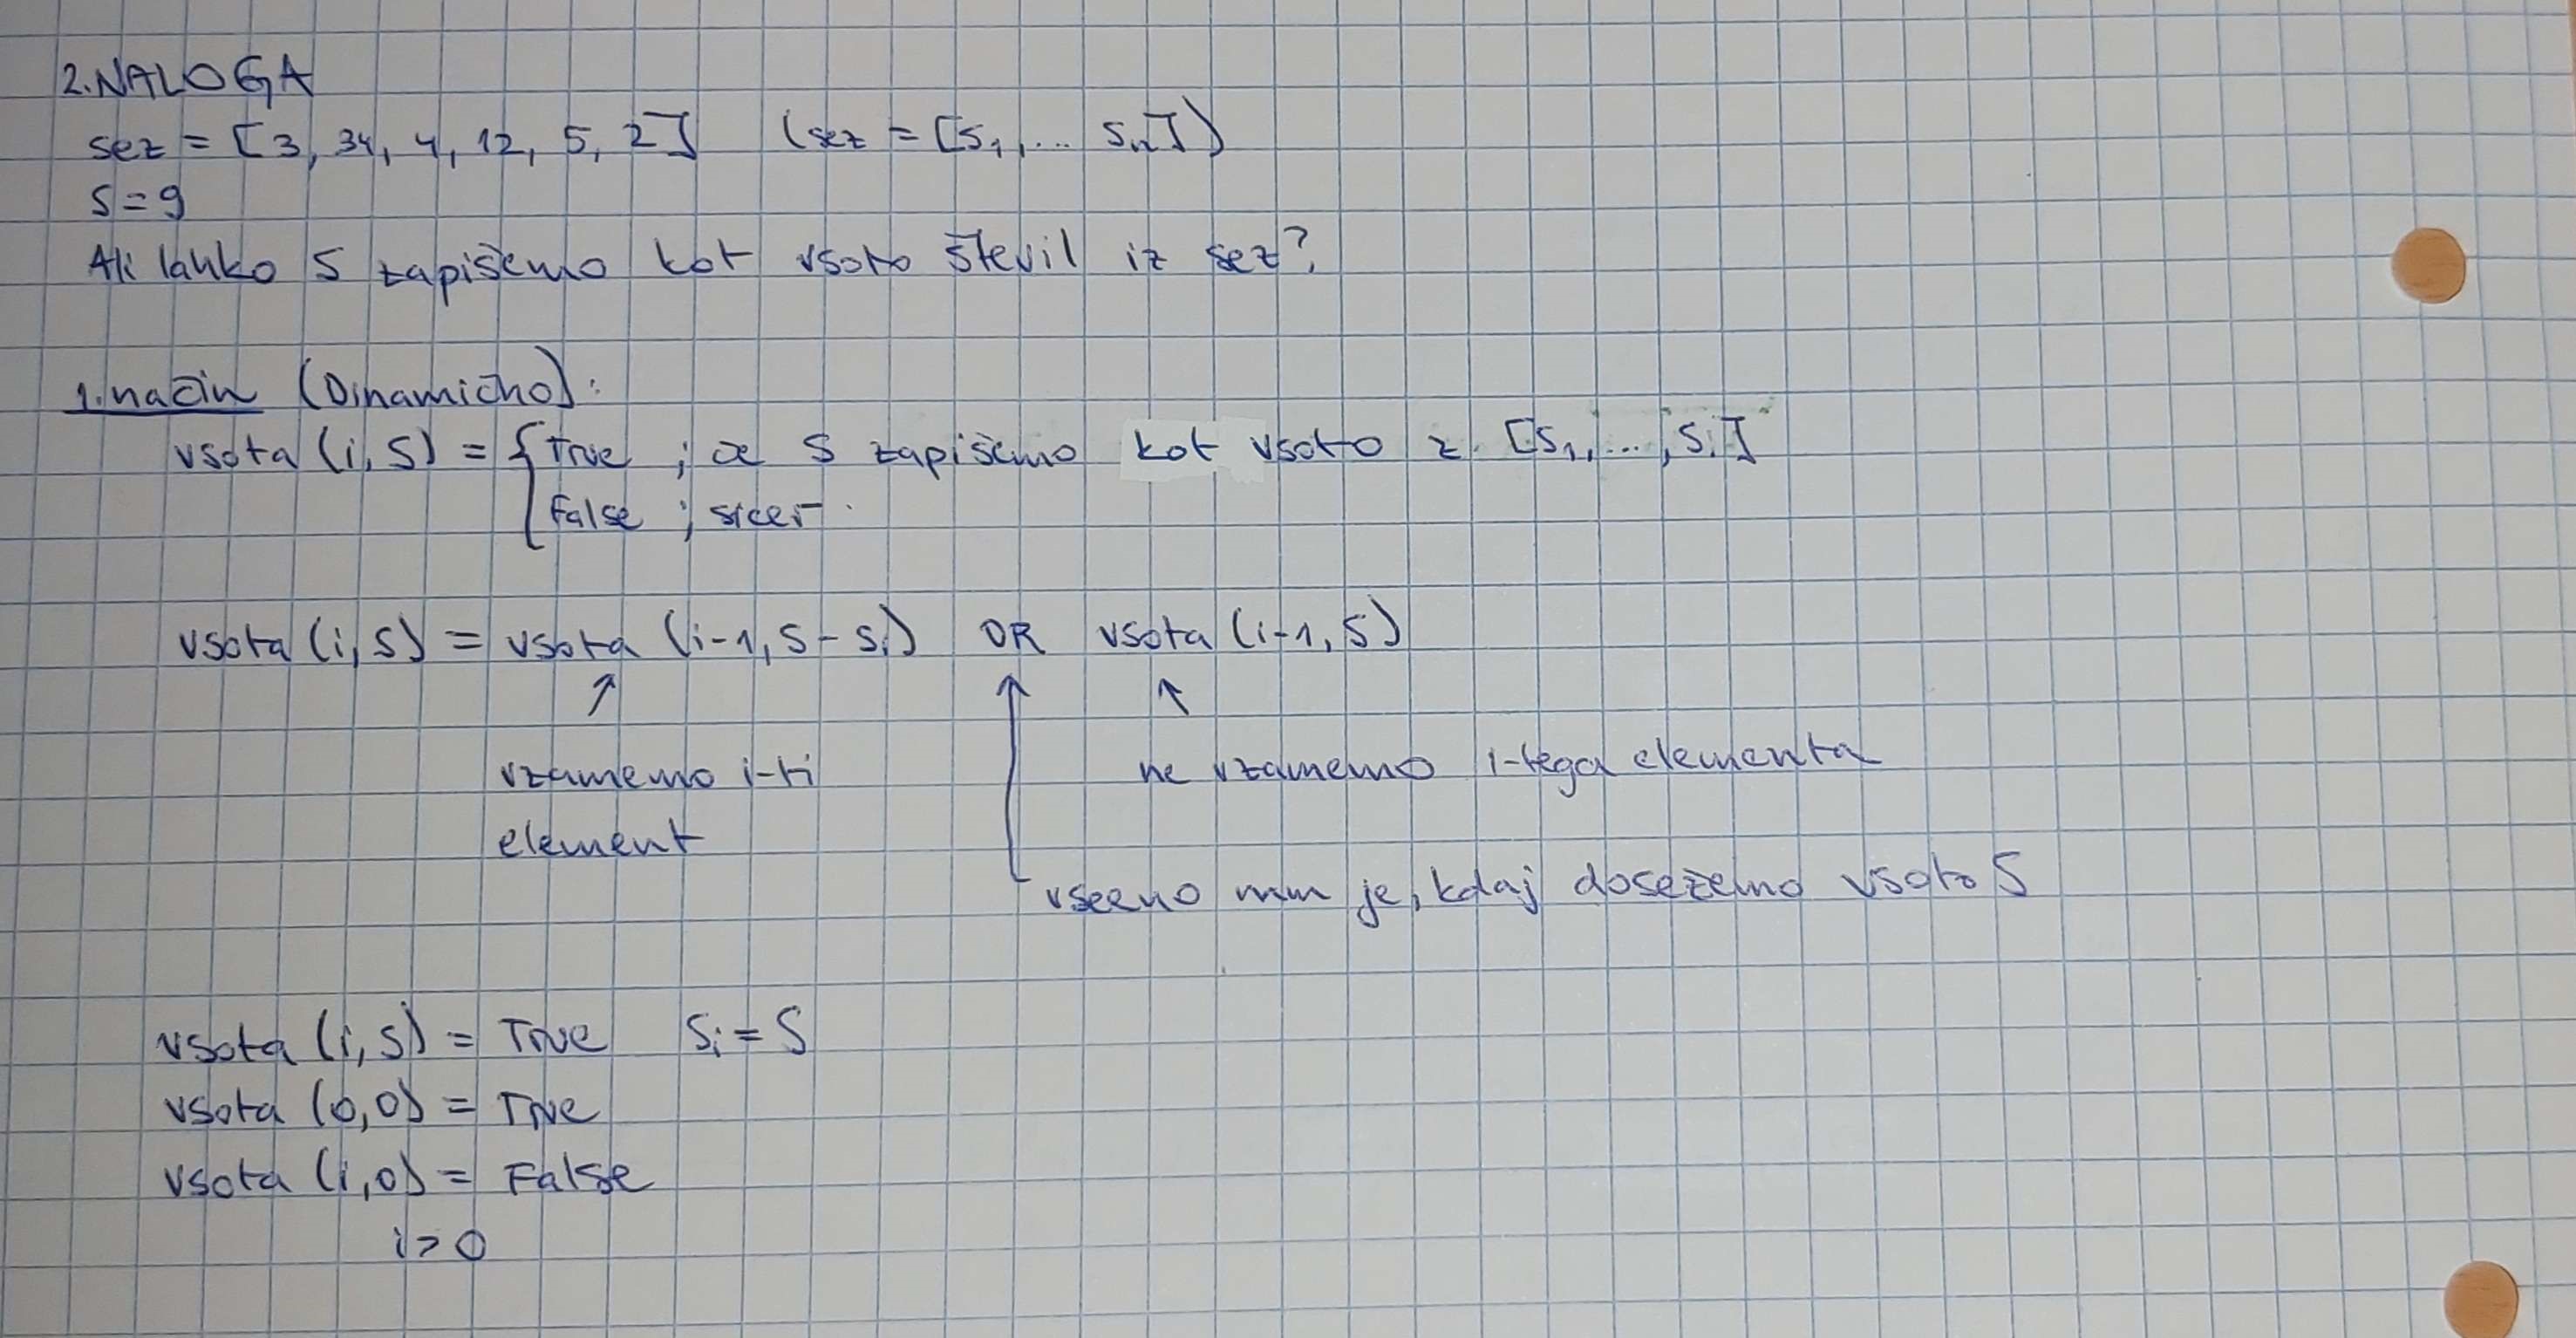 2. NALOGA
sez = [3, 34, 4, 12, 5, 2] (sez = [s₁,... sₙ])
S = 9
Ali lahko S zapišemo kot vsoto števil iz sez?
1. način (Dinamično):
vsota (i, S) = { True ; če S zapišemo kot vsoto z [s₁,...,sᵢ]
False ; sicer.
vsota (i, S) = vsota (i-1, S - sᵢ) OR vsota (i-1, S)
↑ ↑ ↑
vzamemo i-ti ne vzamemo i-tega elementa
element
vseeno nam je, kdaj dosežemo vsoto S
vsota (i, S) = True sᵢ = S
vsota (0,0) = True
vsota (i,0) = False
i > 0